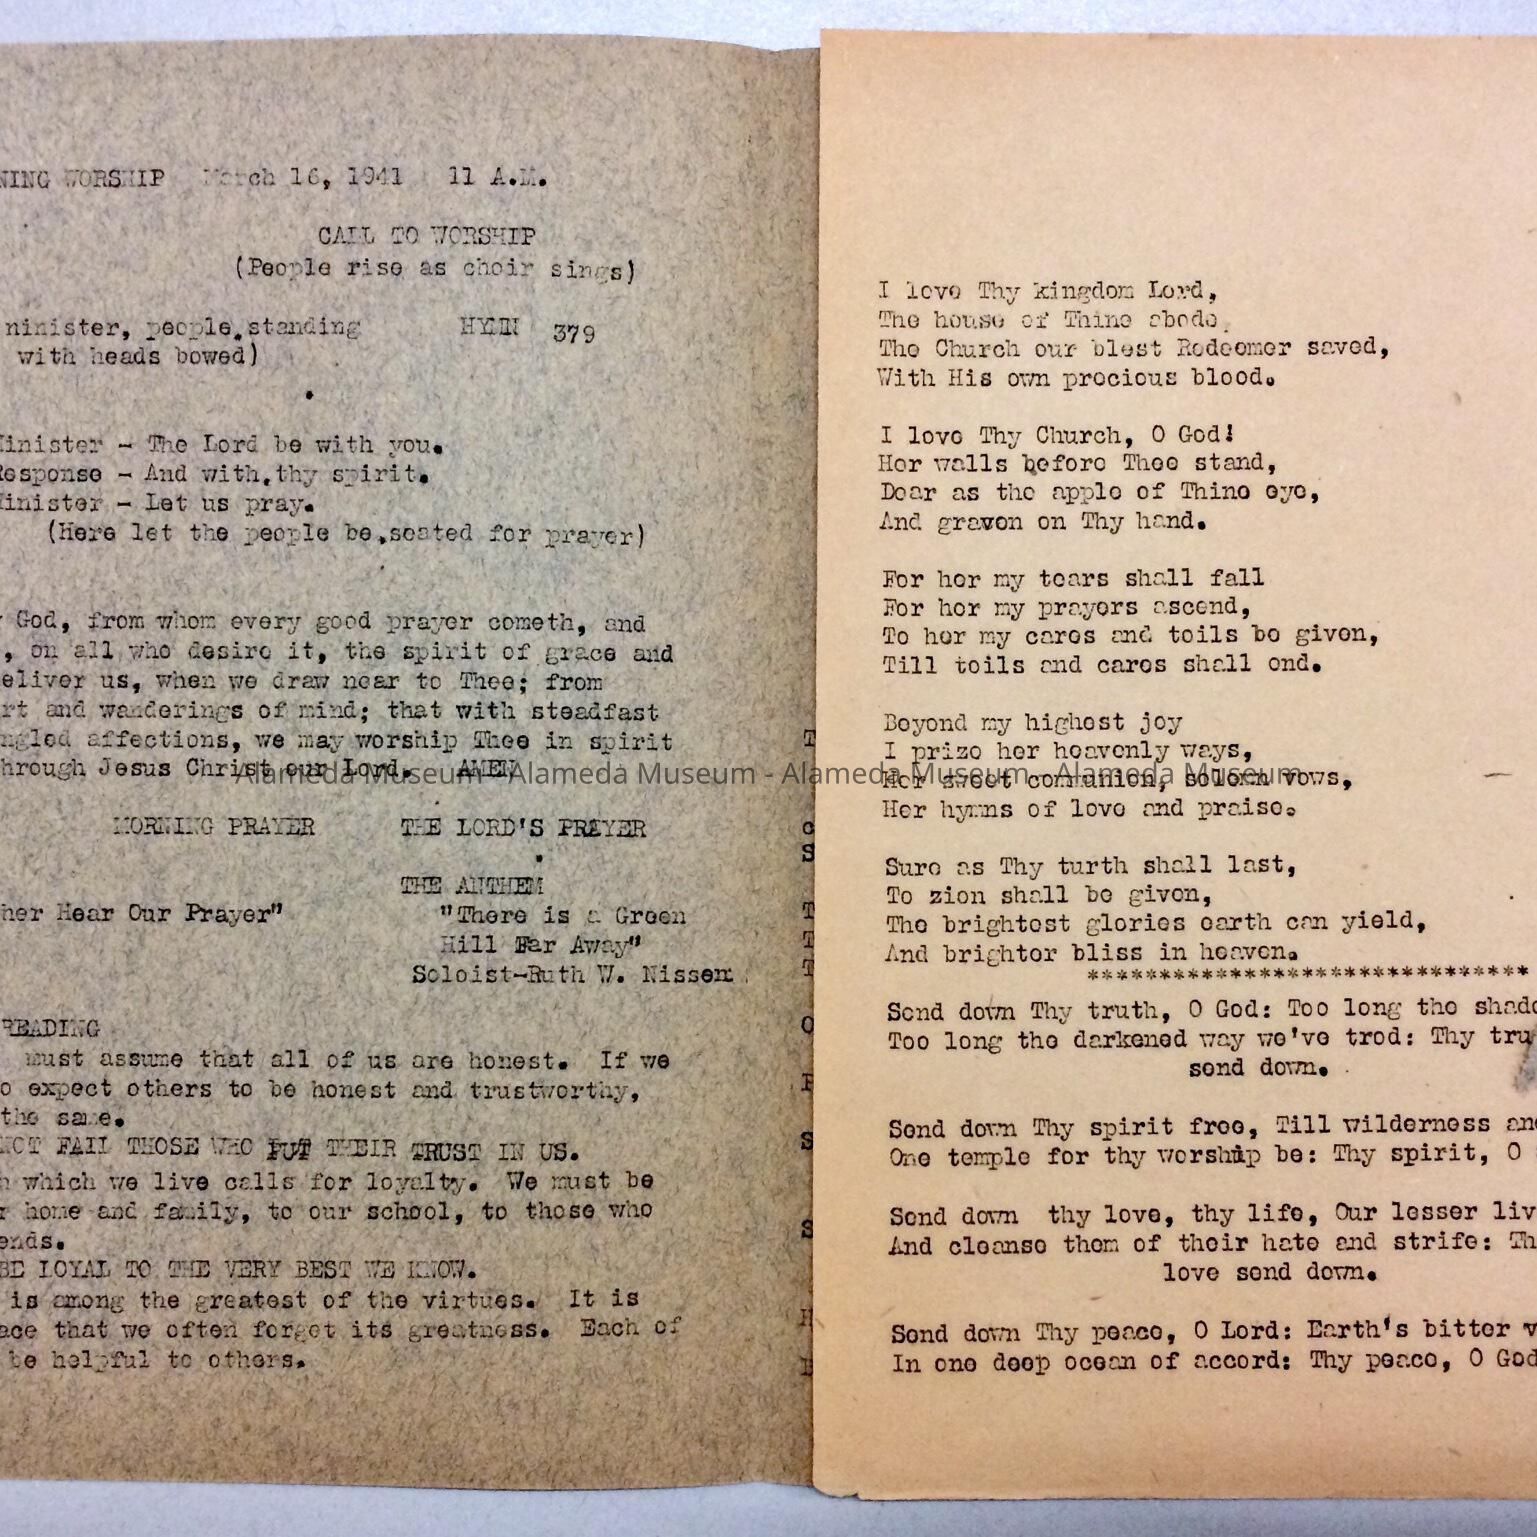 NING WORSHIP March 16, 1941 11 A.M.
CALL TO WORSHIP
(People rise as choir sings)
ninister, people standing HYMN 379
with heads bowed)
inister - The Lord be with you.
esponse - And with thy spirit.
inister - Let us pray.
(Here let the people be seated for prayer)
God, from whom every good prayer cometh, and
, on all who desire it, the spirit of grace and
eliver us, when we draw near to Thee; from
rt and wanderings of mind; that with steadfast
ngled affections, we may worship Thee in spirit
hrough Jesus Christ our Lord. AMEN
MORNING PRAYER THE LORD'S PRAYER
THE ANTHEM
her Hear Our Prayer" "There is a Green
Hill Far Away"
Soloist-Ruth W. Nissen
READING
must assume that all of us are honest. If we
o expect others to be honest and trustworthy,
the same.
NOT FAIL THOSE WHO PUT THEIR TRUST IN US.
h which we live calls for loyalty. We must be
r home and family, to our school, to those who
ends.
BE LOYAL TO THE VERY BEST WE KNOW.
is among the greatest of the virtues. It is
ace that we often forget its greatness. Each of
be helpful to others.
I love Thy kingdom Lord,
The house of Thine abode,
The Church our blest Redeemer saved,
With His own precious blood.
I love Thy Church, O God!
Her walls before Thee stand,
Dear as the apple of Thine eye,
And graven on Thy hand.
For her my tears shall fall
For her my prayers ascend,
To her my cares and toils be given,
Till toils and cares shall end.
Beyond my highest joy
I prize her heavenly ways,
Her sweet communion, solemn vows,
Her hymns of love and praise.
Sure as Thy turth shall last,
To zion shall be given,
The brightest glories earth can yield,
And brighter bliss in heaven.
*******************************
Send down Thy truth, O God: Too long the shado
Too long the darkened way we've trod: Thy tru
send down.
Send down Thy spirit free, Till wilderness and
One temple for thy worship be: Thy spirit, O
Send down thy love, thy life, Our lesser liv
And cleanse them of their hate and strife: Th
love send down.
Send down Thy peace, O Lord: Earth's bitter v
In one deep ocean of accord: Thy peace, O God
Alameda Museum - Alameda Museum - Alameda Museum - Alameda Museum